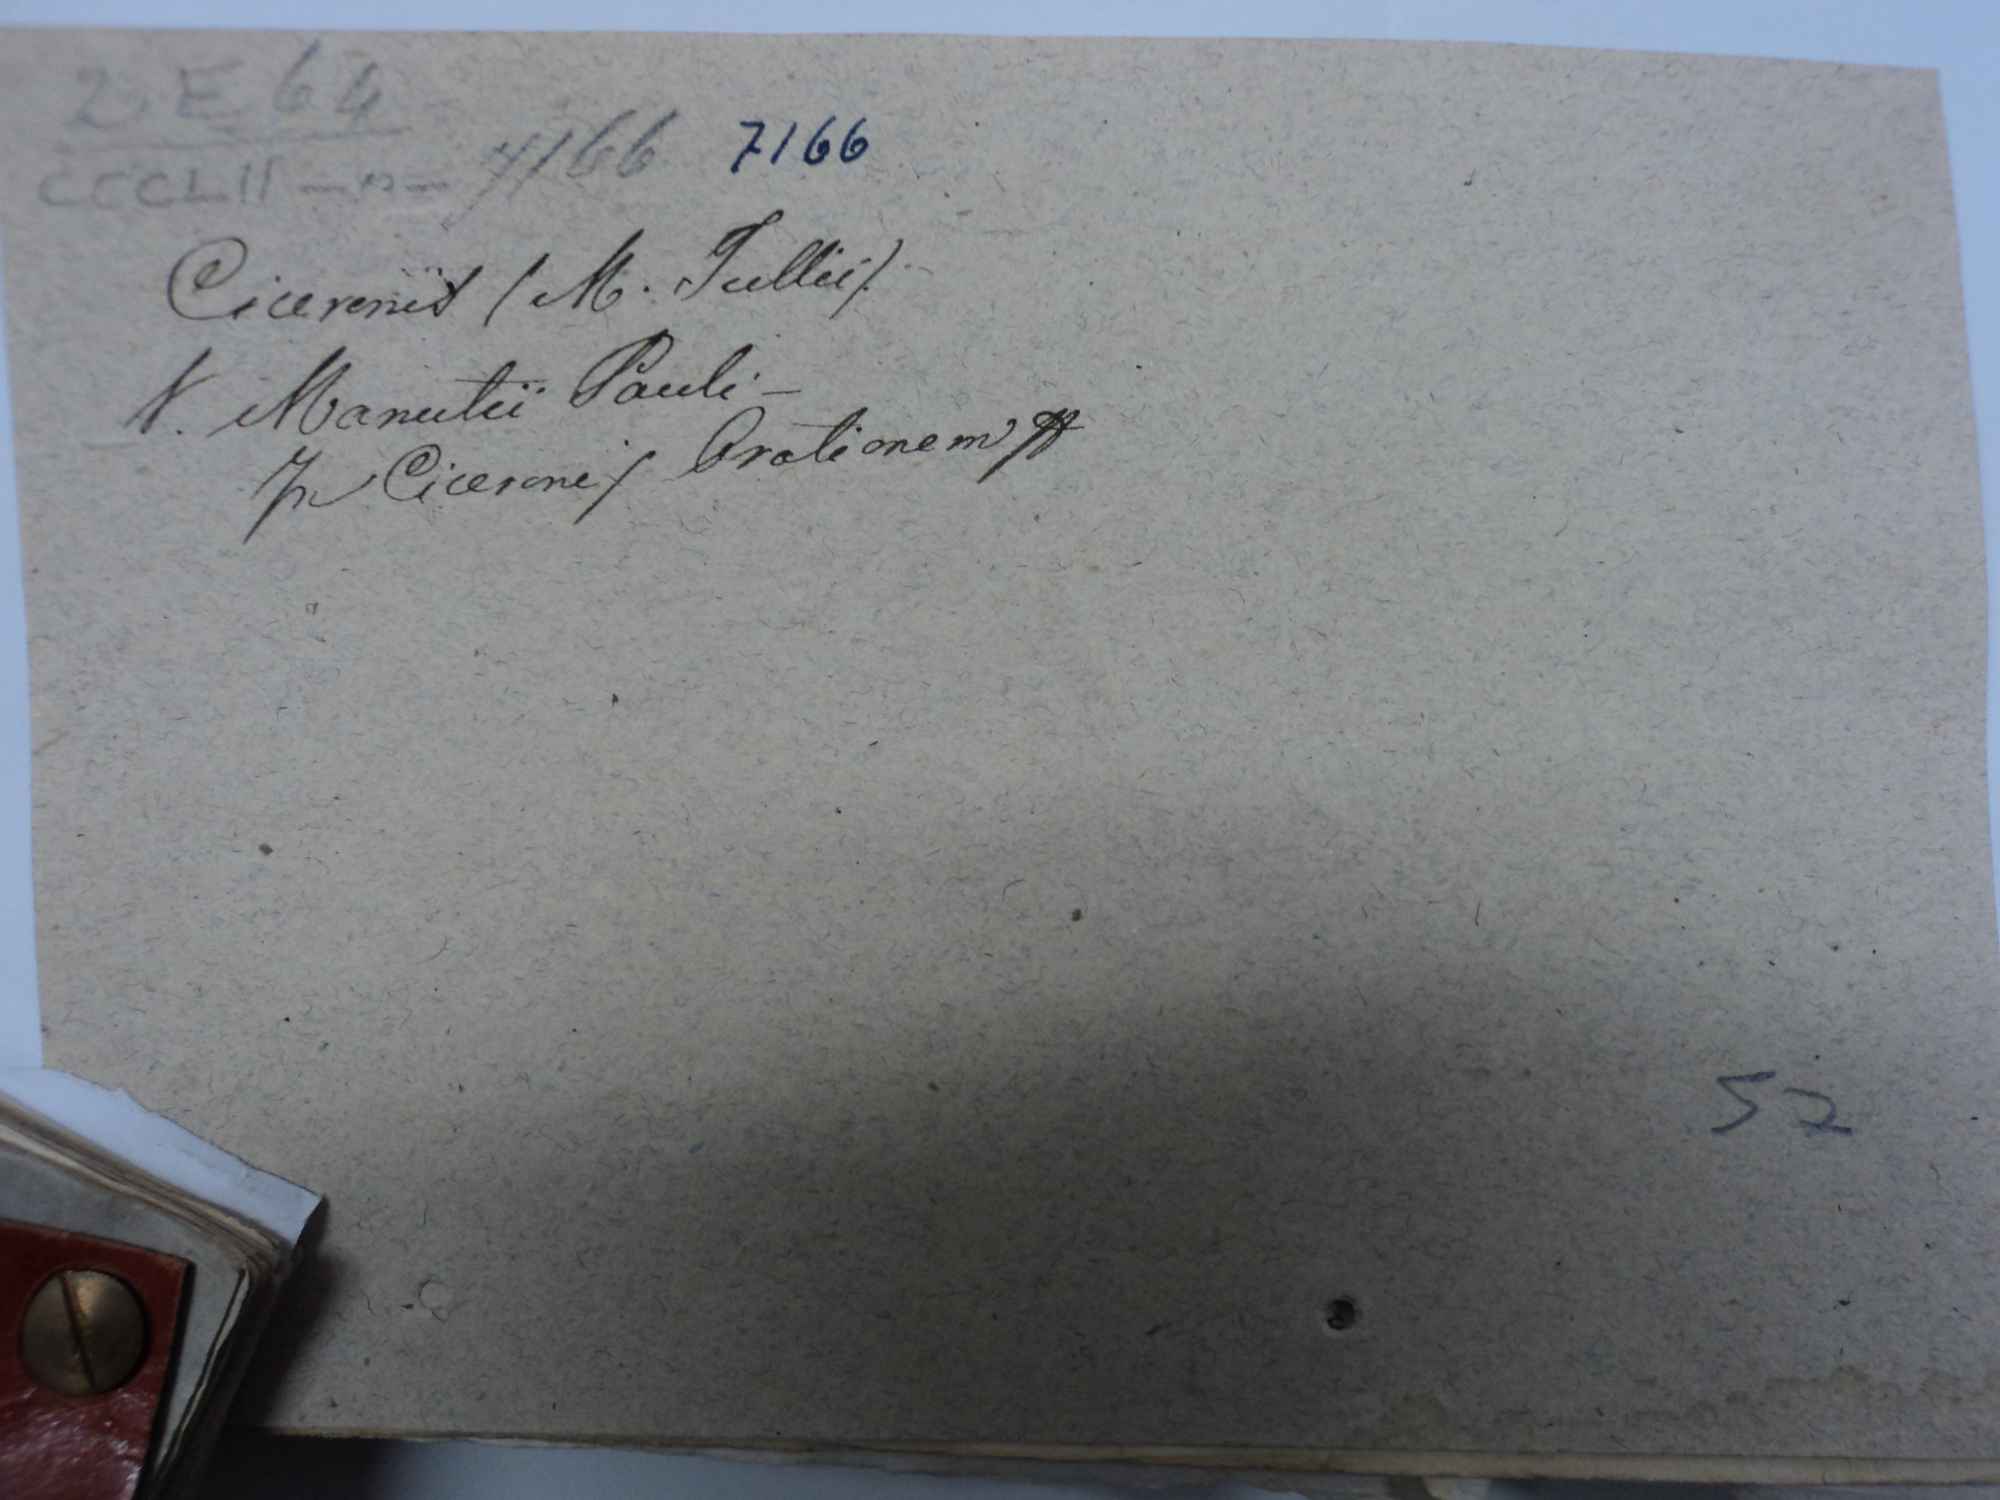 2 E 64
CCCLII — 7166 7166
Ciceronis (M. Tullii).
V. Manutii Pauli —
In Ciceronis Orationem
52